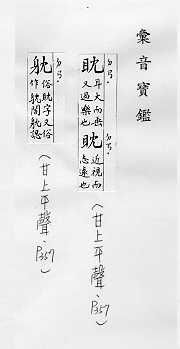 彙音寶鑑
耽 耳大而垂
又過樂也
眈 近視而
志遠也
(甘上平聲、P357)
躭 俗耽字又俗
作躭閣躭誤
(甘上平聲、P357)